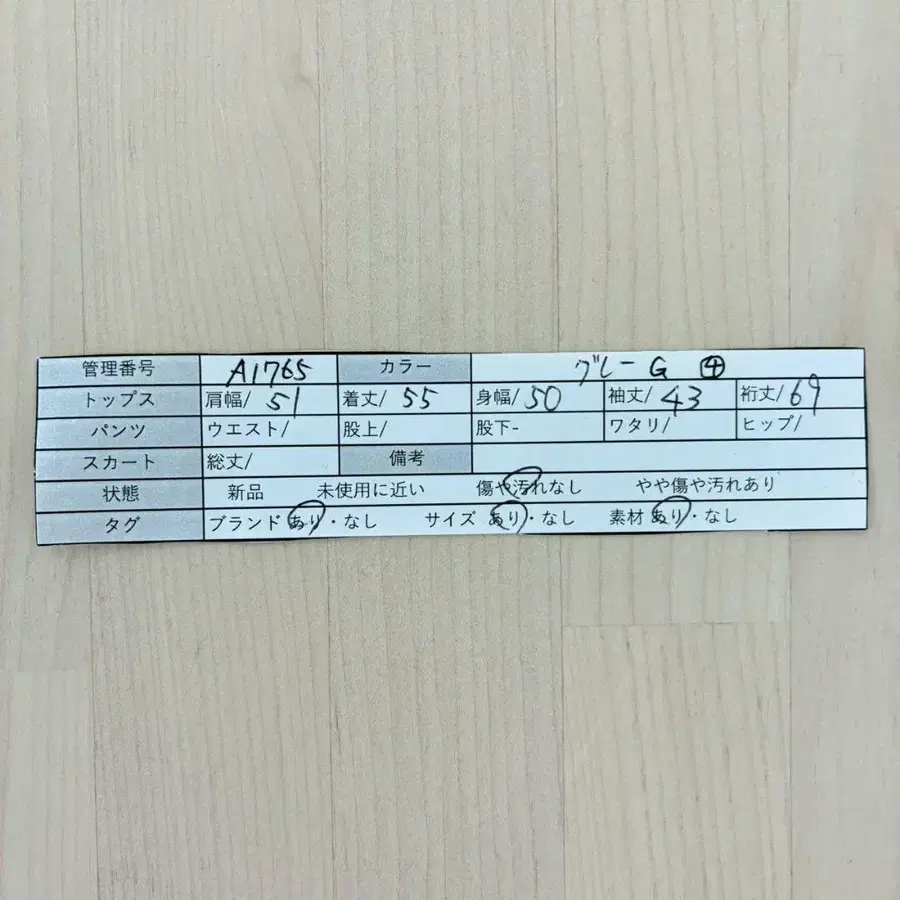 管理番号 A1765 カラー グレーG ④
トップス 肩幅/ 51 着丈/ 55 身幅/ 50 袖丈/ 43 裄丈/ 69
パンツ ウエスト/ 股上/ 股下- ワタリ/ ヒップ/
スカート 総丈/ 備考
状態 新品 未使用に近い 傷や汚れなし やや傷や汚れあり
タグ ブランド あり・なし サイズ あり・なし 素材 あり・なし